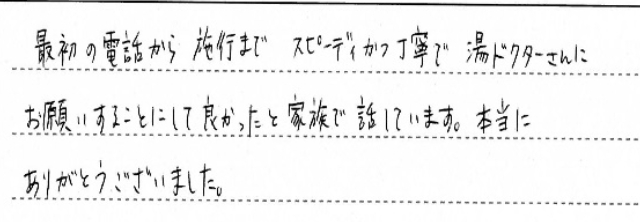 最初の電話から 施行まで スピーディかつ丁寧で 湯ドクターさんに
お願いすることにして良かったと家族で話しています。本当に
ありがとうございました。